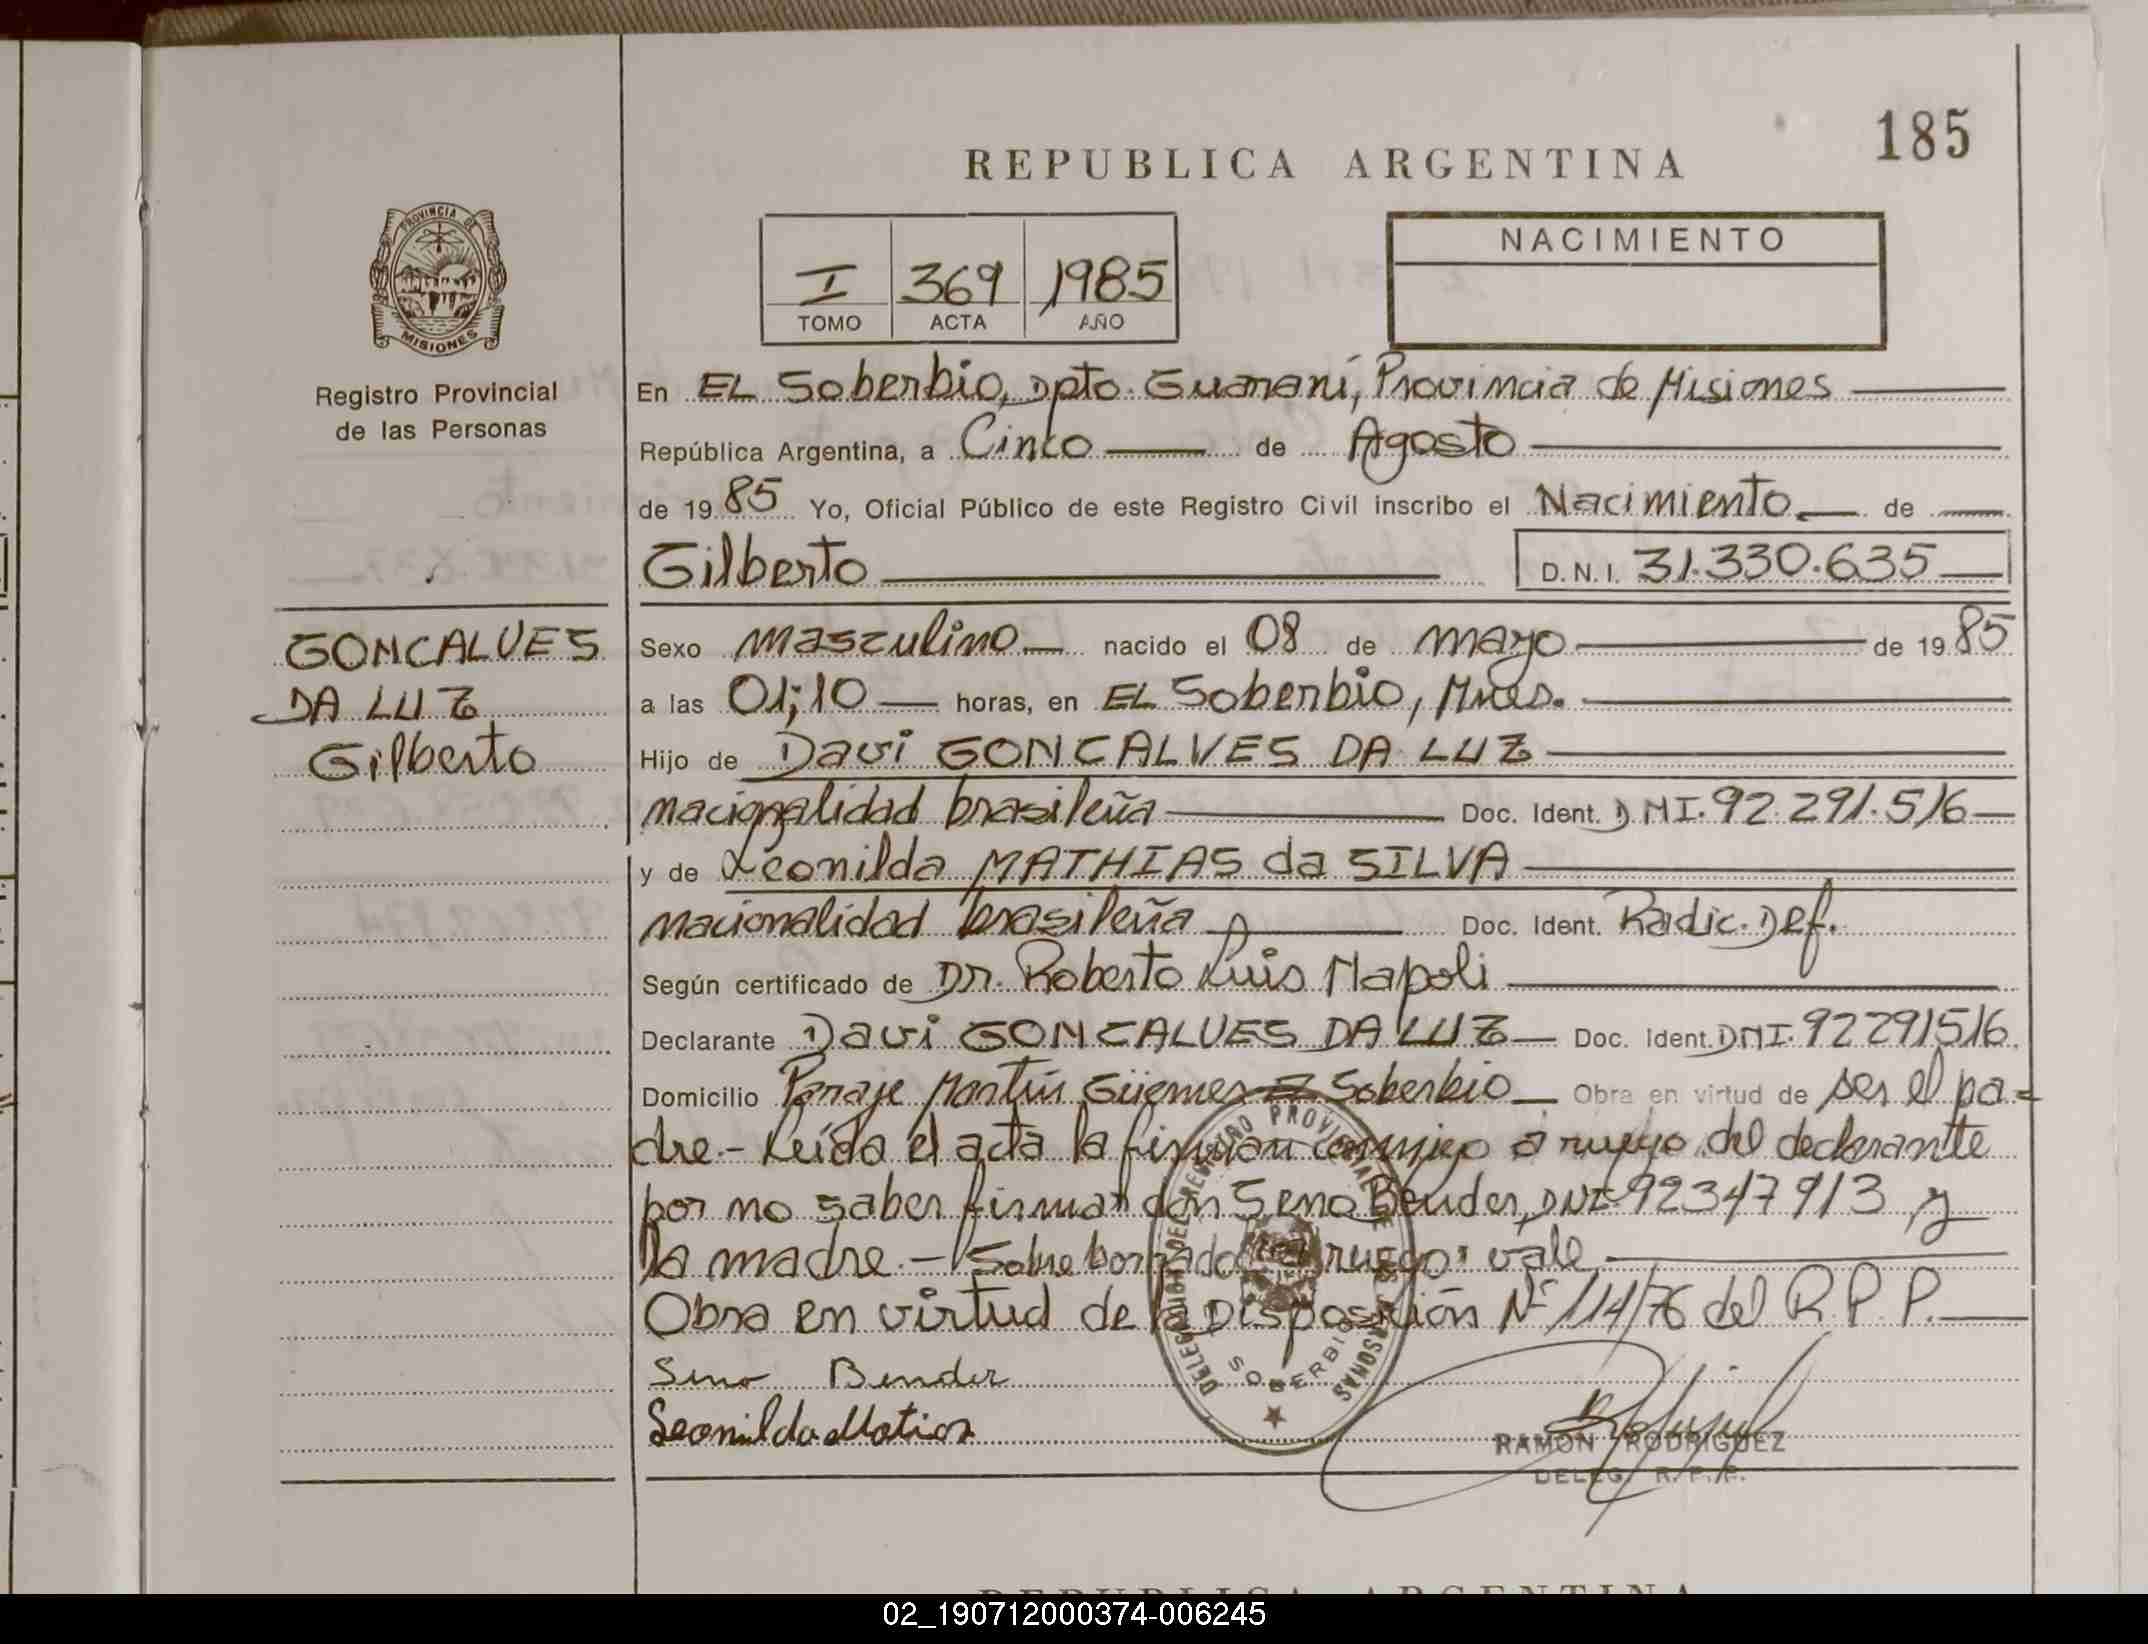 185
REPUBLICA ARGENTINA
PROVINCIA DE
MISIONES
Registro Provincial
de las Personas
I 369 1985
TOMO ACTA AÑO
NACIMIENTO
En EL Soberbio, Dpto. Guaraní, Provincia de Misiones
República Argentina, a Cinco de Agosto
de 1985 Yo, Oficial Público de este Registro Civil inscribo el Nacimiento de
Gilberto D.N.I. 31.330.635
GONCALVES
DA LUZ
Gilberto
Sexo masculino nacido el 08 de mayo de 1985
a las 01;10 horas, en EL Soberbio, Mnes.
Hijo de Davi GONCALVES DA LUZ
nacionalidad brasileña Doc. Ident. DNI. 92.291.516
y de Leonilda MATHIAS da SILVA
nacionalidad brasileña Doc. Ident. Radic. Def.
Según certificado de Dr. Roberto Luis Napoli
Declarante Davi GONCALVES DA LUZ Doc. Ident. DNI. 92291516
Domicilio Paraje Martín Güemes El Soberbio Obra en virtud de ser el pa=
dre.- Leída el acta la firman conmigo a ruego del declarante
por no saber firmar don Seno Bender, DNI. 92347913 y
la madre.- Sobreborrado: a ruego: vale
Obra en virtud de la Disposición Nº 114/76 del R.P.P.
Seno Bender
Leonilda Matias
DELEGACION DEL REGISTRO PROVINCIAL DE LAS PERSONAS
SOBERBIO
RAMON RODRIGUEZ
DELEG. R.P.P.
REPUBLICA ARGENTINA
02_190712000374-006245